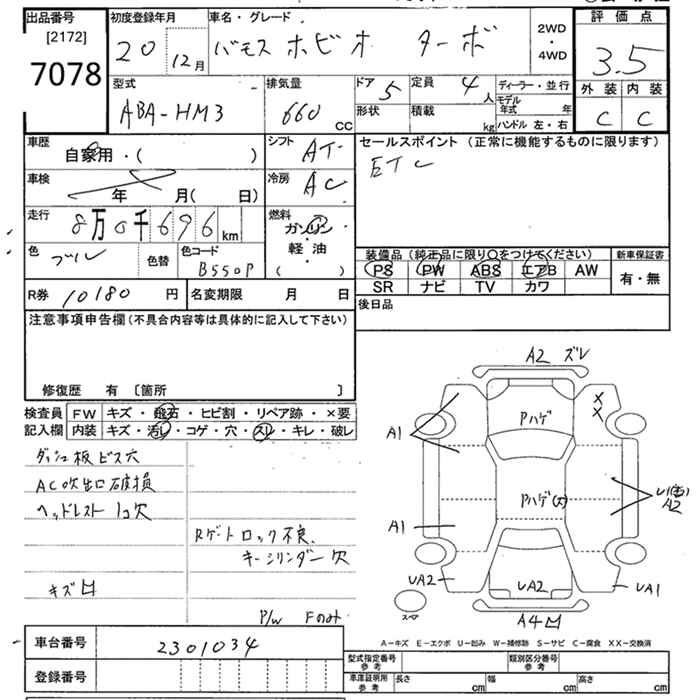 出品番号 初度登録年月 車名・グレード 評価点
[2172]
7078
20 12月 バモス ホビオ ターボ 2WD・4WD 3.5
型式 排気量 ドア 定員 ディーラー・並行 外装 内装
ABA-HM3 660 CC 5 4人 モデル年式 年 C C
形状 積載 kg ハンドル 左・右
車歴 シフト セールスポイント (正常に機能するものに限ります)
自家用・( ) AT ETC
車検 冷房
年 月( 日) AC
走行 燃料
8万0千696km ガソリン
軽・油
( ・ )
色 ブル 色替 色コード B550P
装備品(純正品に限り○をつけてください) 新車保証書
PS PW ABS エアB AW 有・無
SR ナビ TV カワ
R券 10180 円 名変期限 月 日 後日品
注意事項申告欄(不具合内容等は具体的に記入して下さい)
修復歴 有 〔箇所 〕
検査員 FW キズ・飛石・ヒビ割・リペア跡・×要
記入欄 内装 キズ・汚レ・コゲ・穴・スレ・キレ・破レ
ダッシュ板ビス穴
AC吹出口破損
ヘッドレスト 1コ欠
Rゲートロック不良
キーシリンダー欠
キズ凹
P/W Fのみ
A2 ズレ
Pハゲ
XX
A1
Pハゲ(大)
A2
A1
UA2 UA2 UA1
スペア
A4凹
車台番号 2301034
登録番号
A-キズ E-エクボ U-凹み W-補修跡 S-サビ C-腐食 XX-交換済
型式指定番号 参考 類別区分番号 参考
車庫証明用 参考 長さ cm 幅 cm 高さ cm